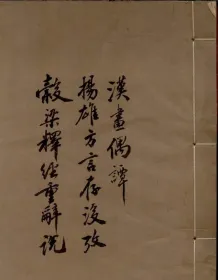 漢畫偶譚
揚雄方言存沒攷
縠梁釋經重辭说